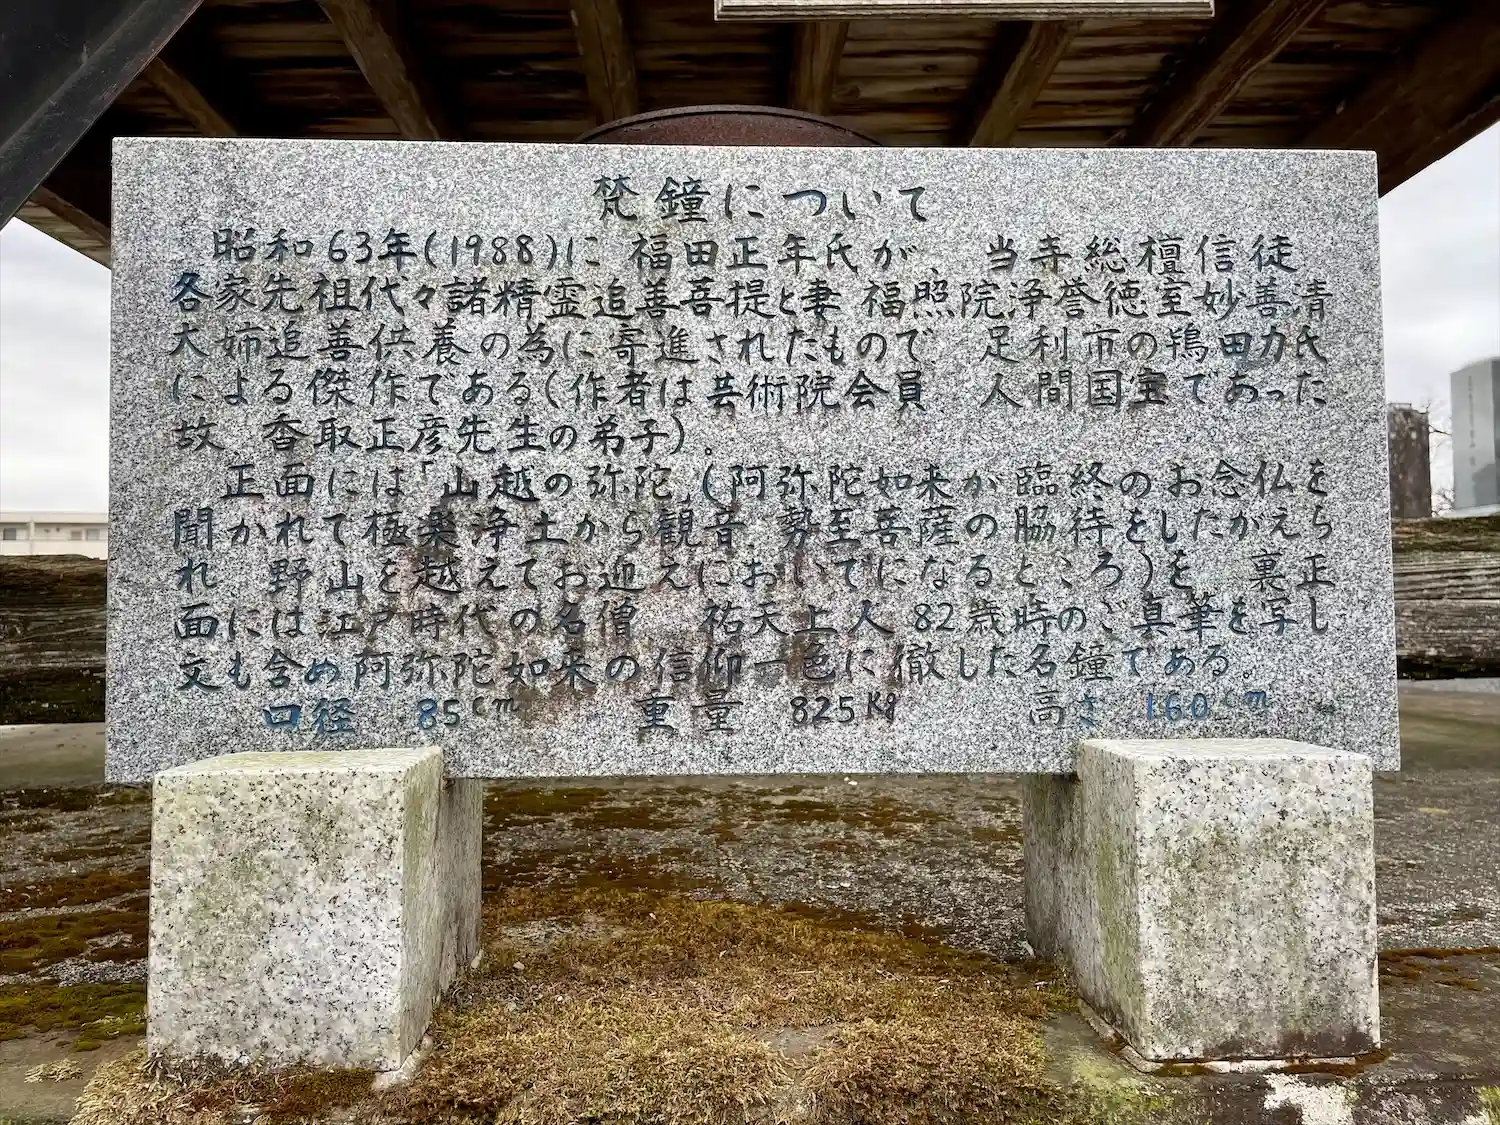 梵鐘について
昭和63年(1988)に 福田正年氏が、当寺総檀信徒
各家先祖代々諸精霊追善菩提と妻 福照院浄誉徳室妙善清
大姉追善供養の為に寄進されたもので 足利市の鋳田力氏
による傑作である(作者は芸術院会員 人間国宝であった
故 香取正彦先生の弟子)。
正面には「山越の弥陀」(阿弥陀如来が臨終のお念仏を
聞かれて極楽浄土から観音 勢至菩薩の脇待をしたがえら
れ 野山を越えてお迎えにおいでになるところ)を 裏正
面には江戸時代の名僧 祐天上人82歳時のご真筆を写し
文も含め阿弥陀如来の信仰一色に徹した名鐘である。
口径 85cm 重量 825Kg 高さ 160cm